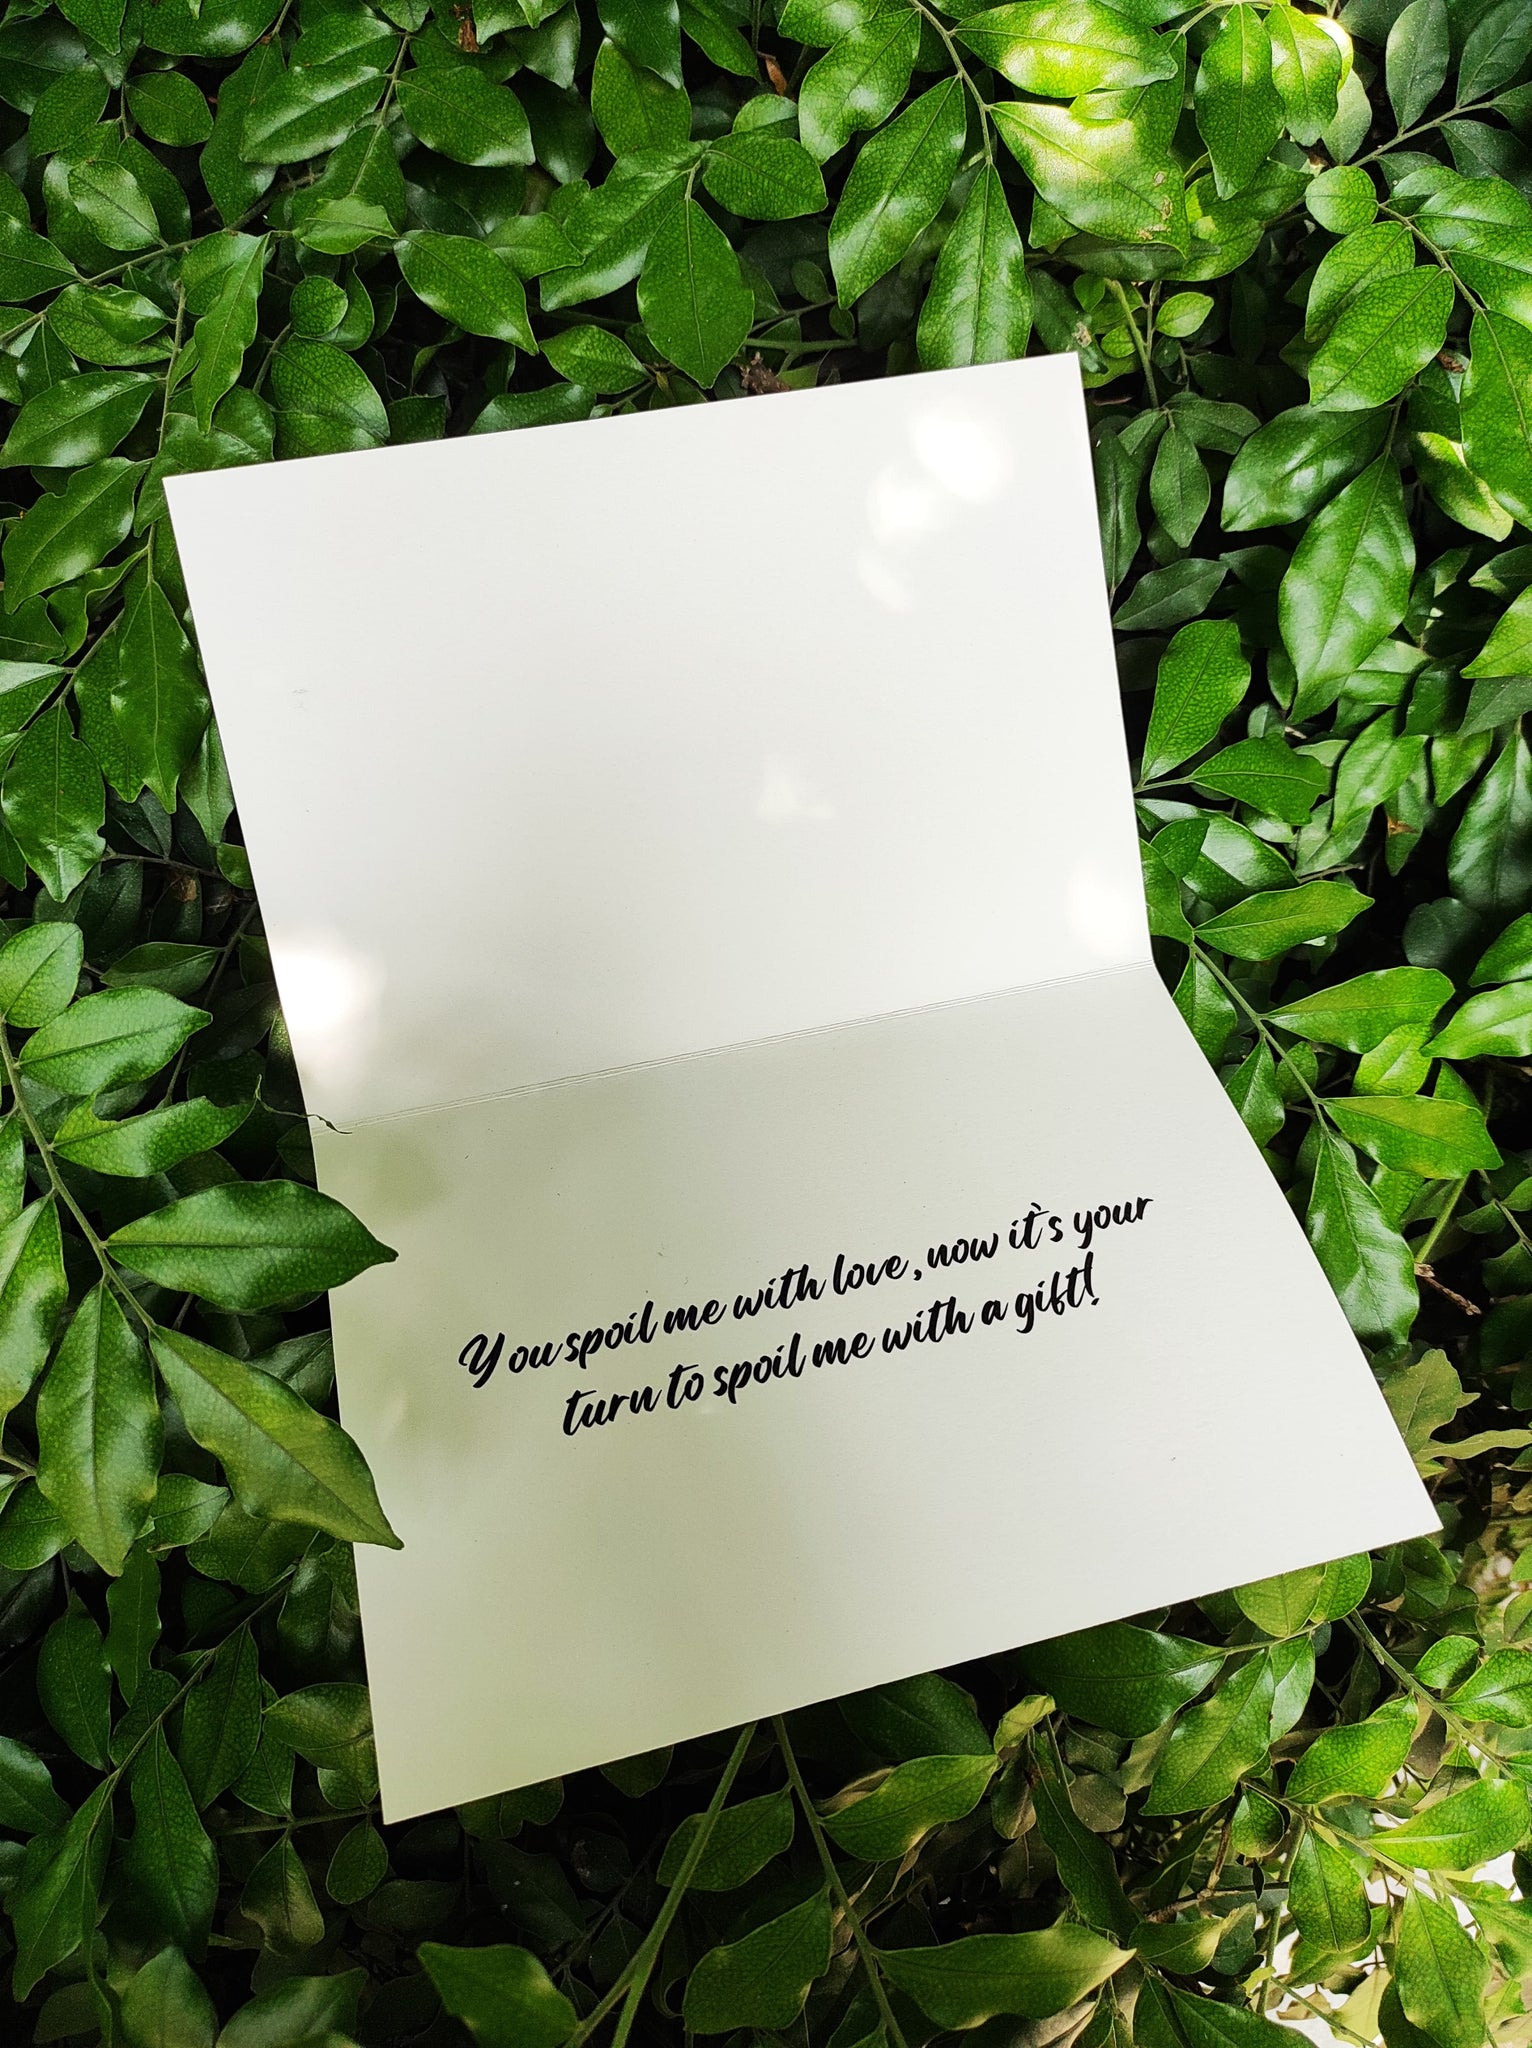 You spoil me with love, now it's your
turn to spoil me with a gift!